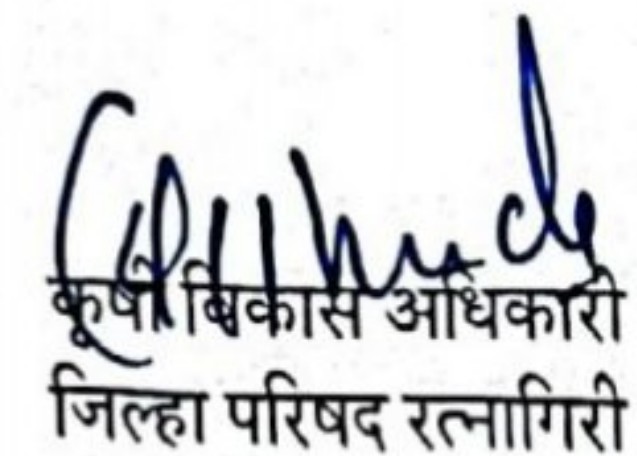 कृषी विकास अधिकारी
जिल्हा परिषद रत्नागिरी